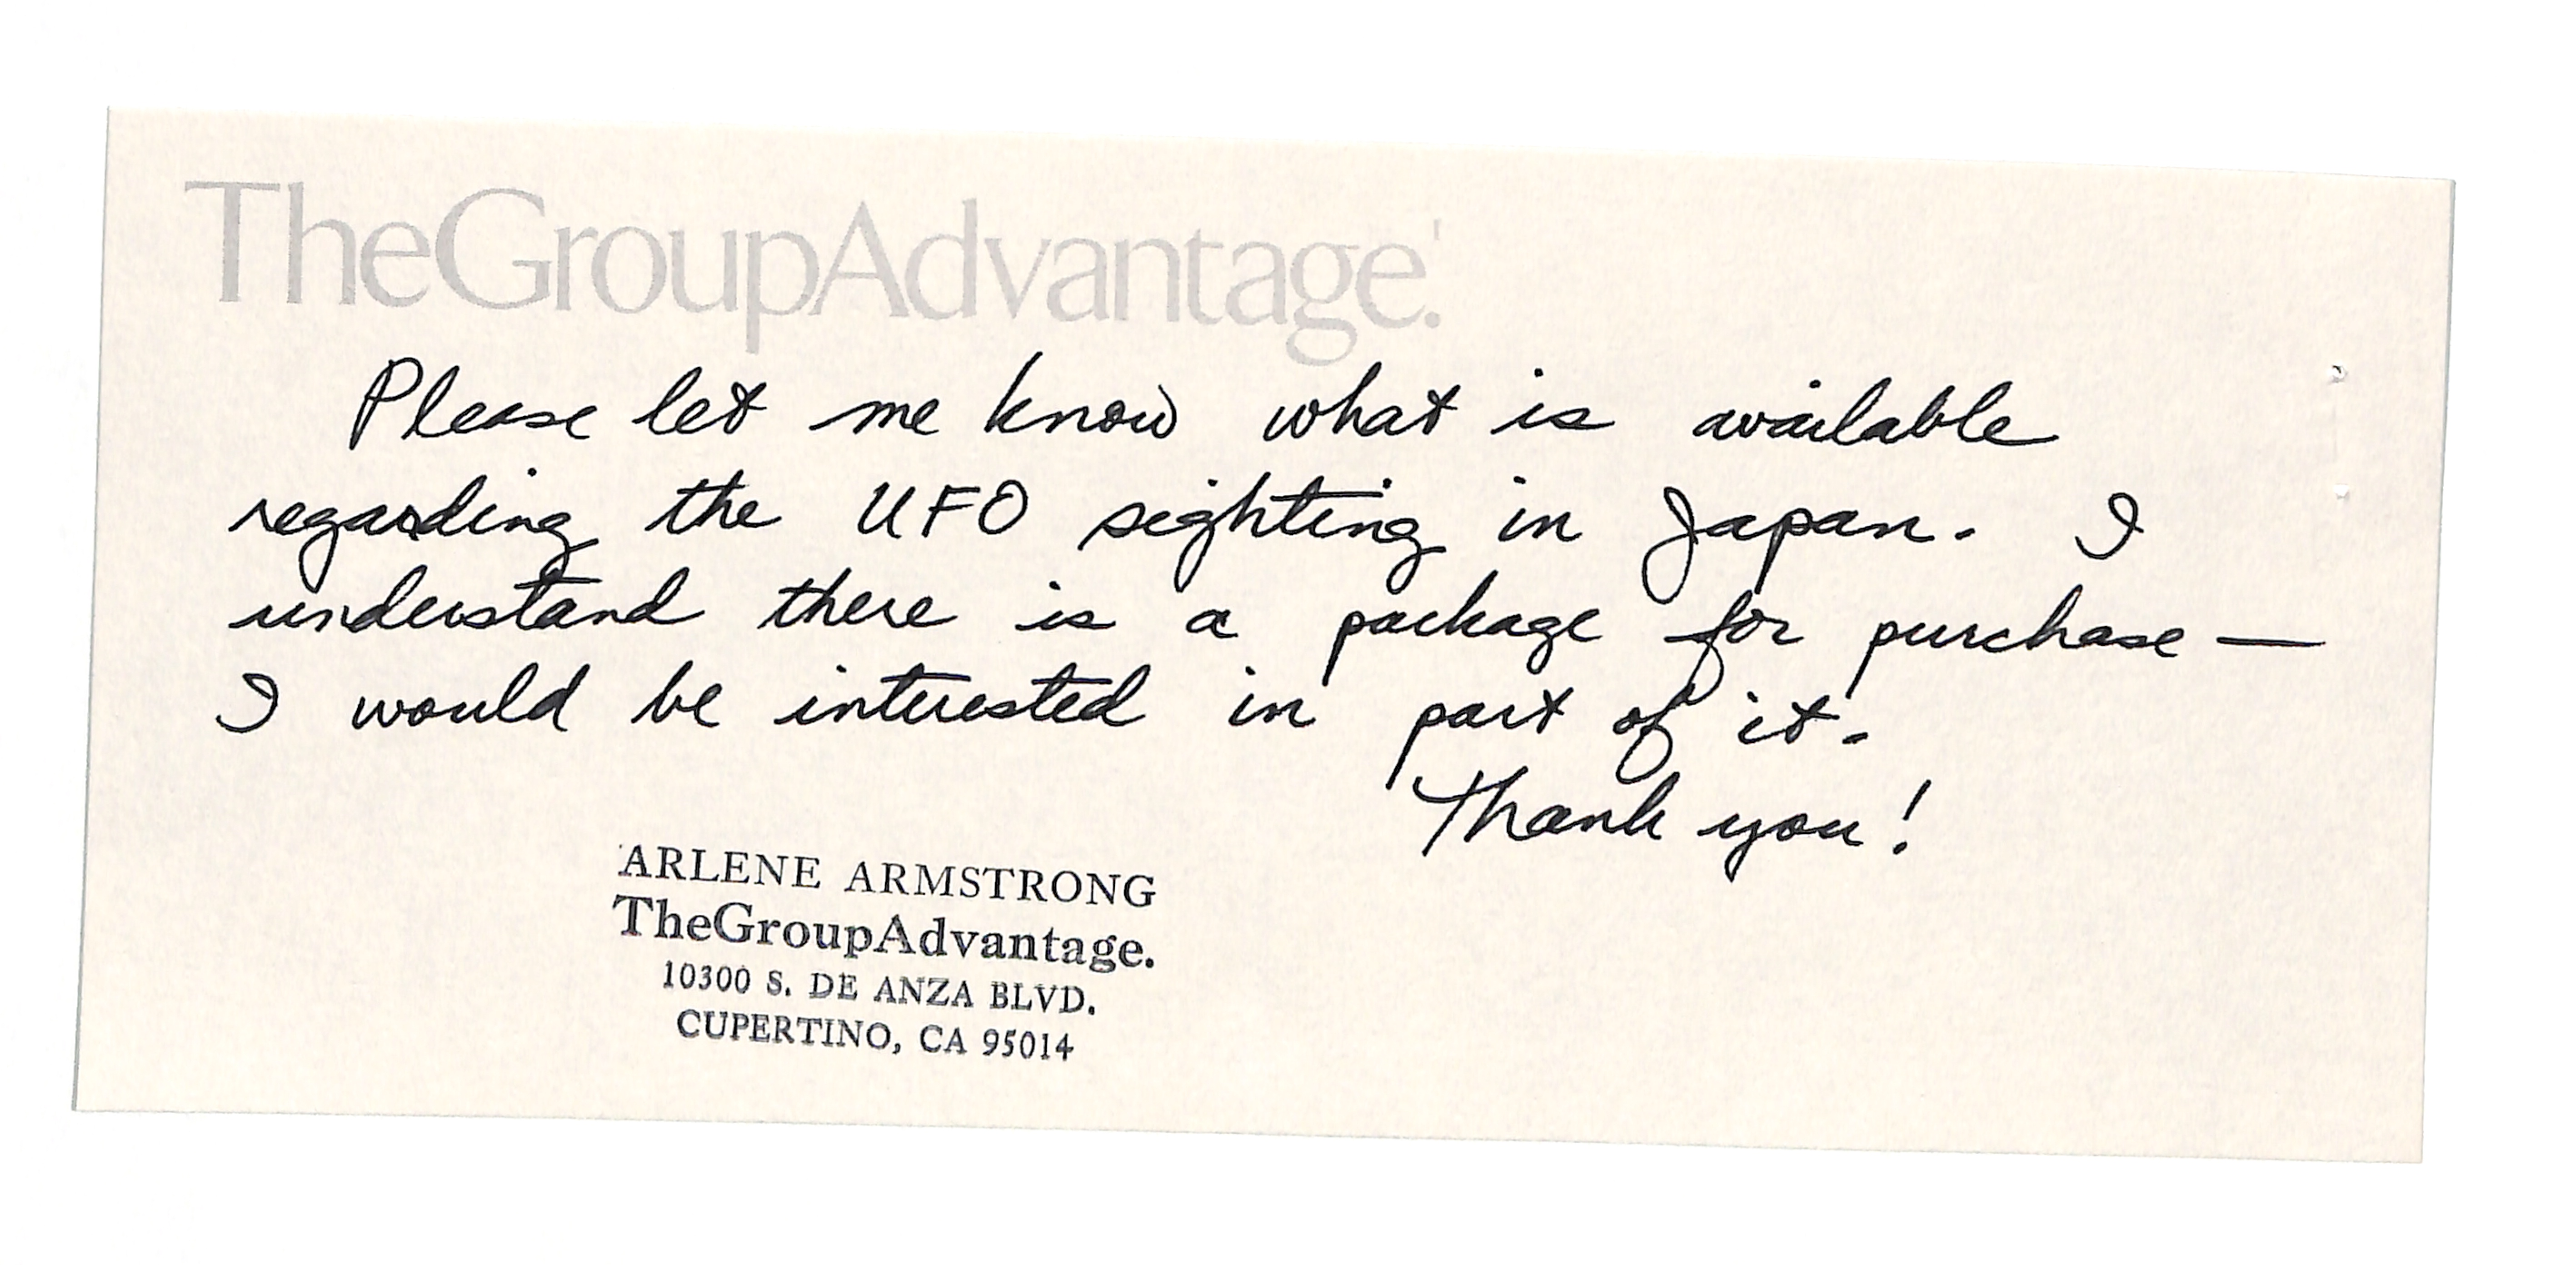 TheGroupAdvantage.
Please let me know what is available
regarding the UFO sighting in Japan. I
understand there is a package for purchase —
I would be interested in part of it.
Thank you!
ARLENE ARMSTRONG
TheGroupAdvantage.
10300 S. DE ANZA BLVD.
CUPERTINO, CA 95014